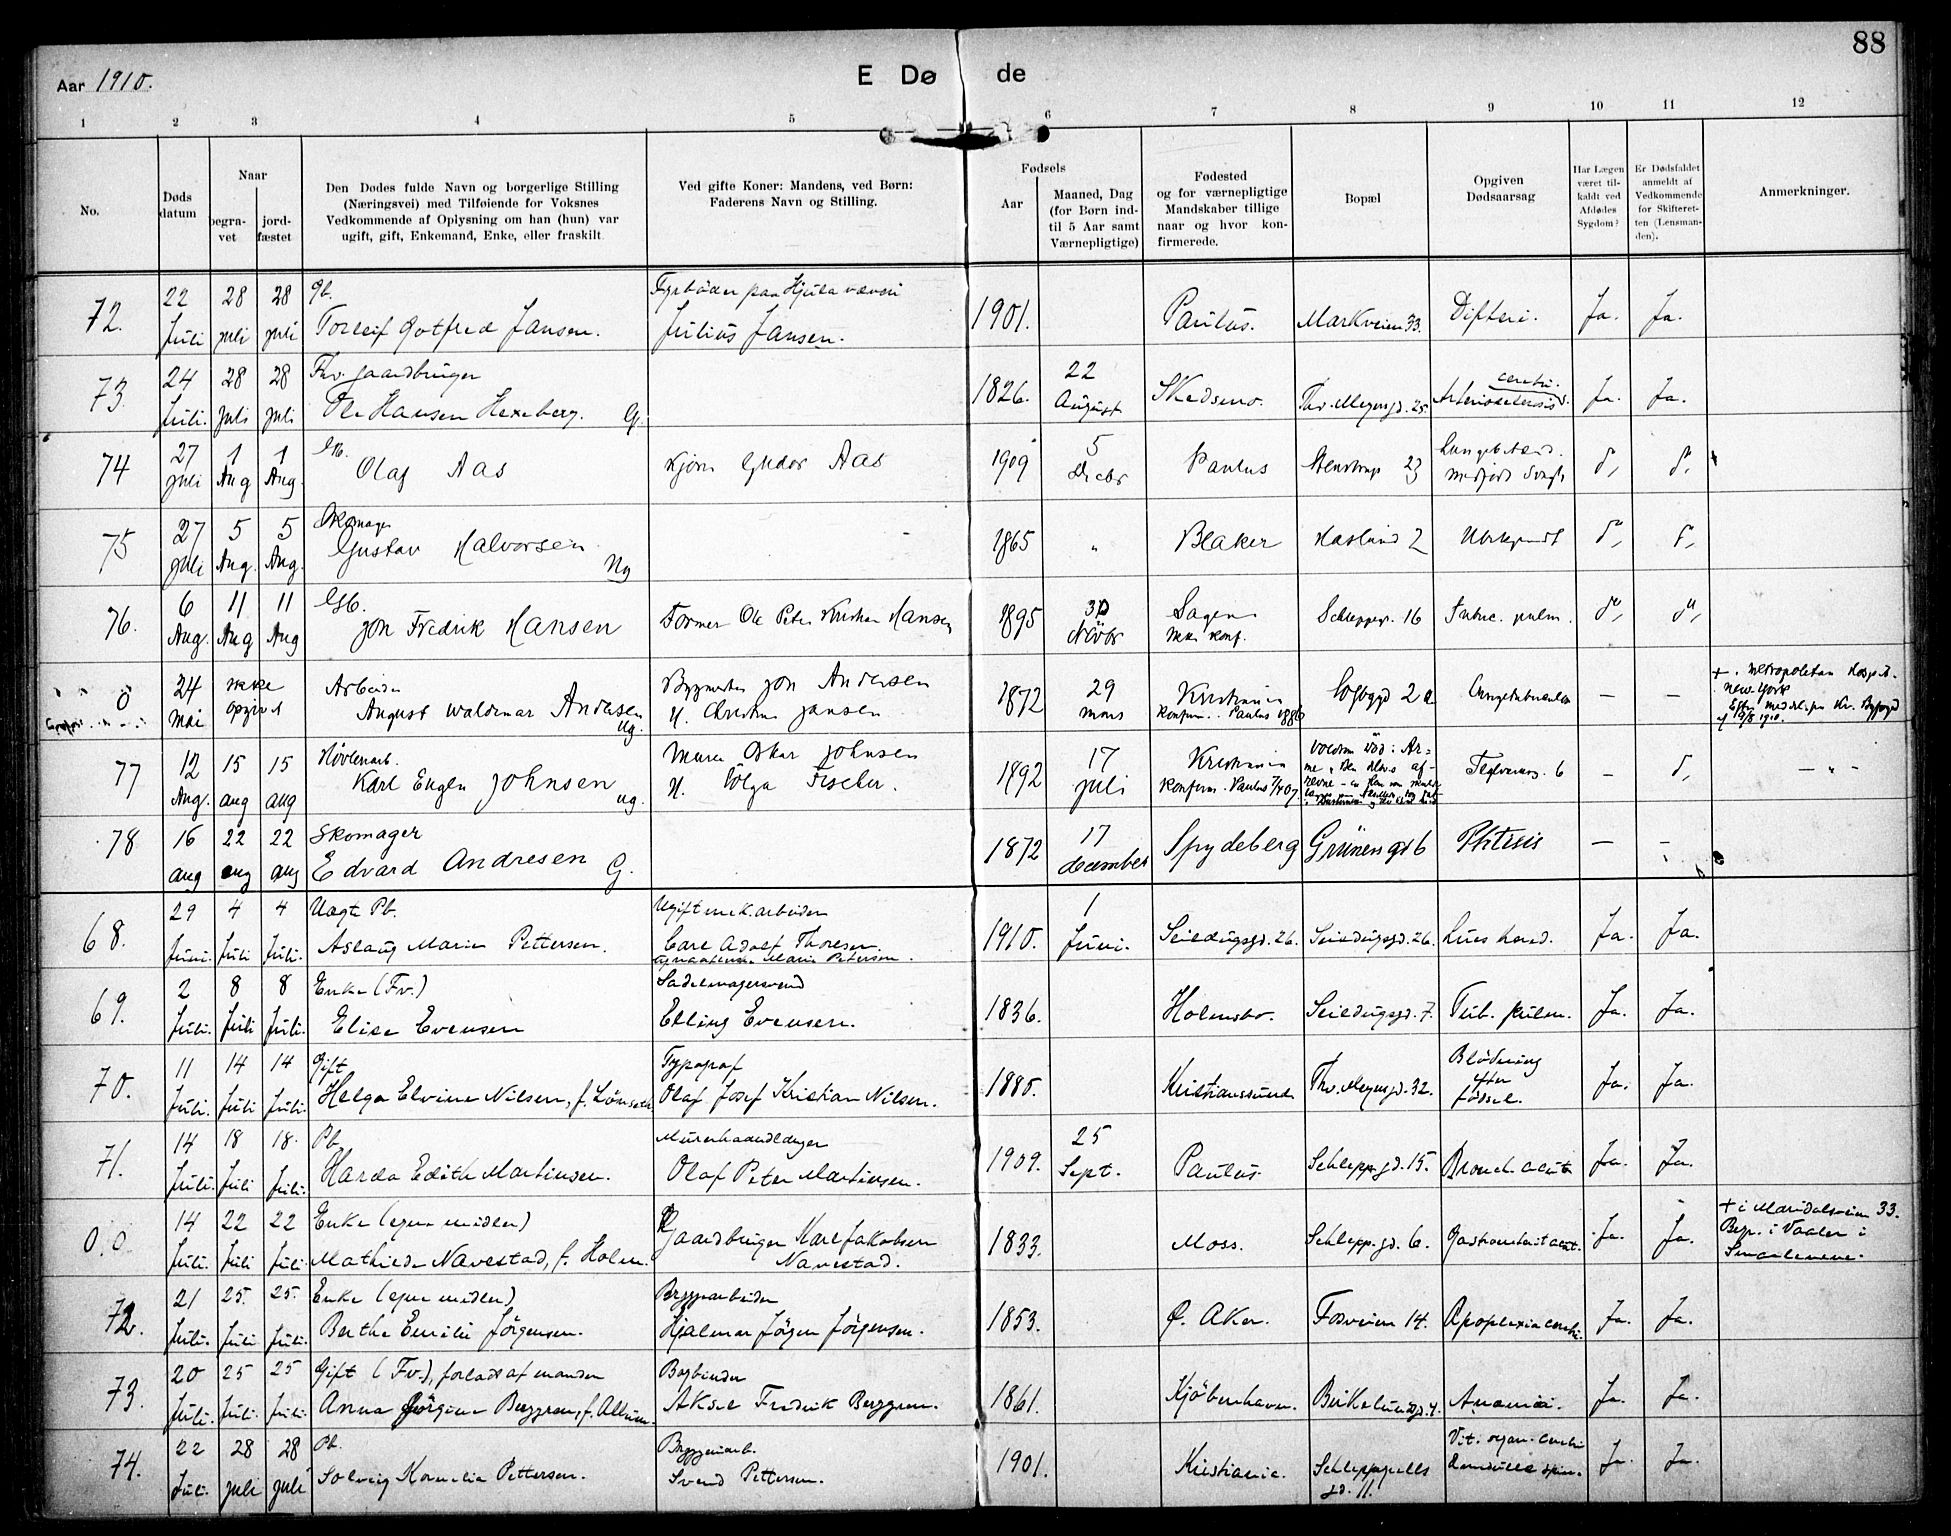 88
Aar 1910.
E Dø de
1 2 3 4 5 6 7 8 9 10 11 12
No.
Døds datum
Naar
begra-vet
jord-fæstet
Den Dødes fulde Navn og borgerlige Stilling
(Næringsvei) med Tilføiende for Voksnes
Vedkommende af Oplysning om han (hun) var
ugift, gift, Enkemand, Enke, eller fraskilt
Ved gifte Koner: Mandens, ved Børn:
Faderens Navn og Stilling.
Fødsels
Aar
Maaned, Dag
(for Børn ind-
til 5 Aar samt
Værnepligtige)
Fødested
og for værnepligtige
Mandskaber tillige
naar og hvor kon-
firmerede.
Bopæl
Opgiven
Dødsaarsag
Har Lægen
været til-
kaldt ved
Afdødes
Sygdom?
Er Dødsfaldet
anmeldt af
Vedkommende
for Skifteret-
ten (Lensman-
den).
Anmerkninger.
22 28 28 gb. Fyrbøder paa Hjula væveri
72. Juli juli juli Torleif Gotfred Jansen. Julius Jansen. 1901. Paulus. Markveien 33. Difteri. Ja. Ja.
24 28 28 Fhv. gaardbruger 22 cerebri.
73. Juli. juli juli Ole Hansen Hexeberg. G. 1826. August Skedsmo. Thv. Meyersgd. 25. Arteriosclerosis Ja. Ja.
27 1 1 5
74 juli Aug Aug. Olaf Aas Aas 1909 Decbr Paulus 23
27 5 5 Skomager
75 juli Aug. Aug. Gustav Halvorsen Ug 1865 " Blaker 2
6 11 11 Gb. 30
76. Aug. Aug Aug Jon Fredrik Hansen Former Ole Peter Kristian Hansen 1895 Novbr Sagene Schleppgr. 16 Tuberc. pulm.
24 ikke Arbeider Jon Andersen 29 Kristiania + i Metropolitan Hospit.
0 mai opgivet August Waldemar Andersen ug. H. Christine Jansen 1872 mars konfirm. Paulus 1886 — — New-York
12 15 15 Høvleriarb. Murer Oskar Johnsen 17 Kristiania
77 Aug. aug aug Karl Eugen Johnsen ug. H. Olga Fischer. 1892 juli konfirm. Paulus 6 — — " -
16 22 22 Skomager 17
78 aug aug aug Edvard Andresen G. 1872 december Spydeberg Grünersgd 6 Phtisis — —
29 4 4 Uægte Pb. Ugift mek. arbeider 1
68. Juni. Juli Juli. Aslaug Marie Pettersen. Carl Adolf Thoresen. 1910. Juni. Seildugsgd. 26. Seildugsgd. 26. Lues hered. Ja. Ja.
Marie Petersen.
2 8 8 Enke (Fv.) Sadelmagersvend
69. Juli. Juli Juli. Elise Evensen Elling Evensen. 1836. Holmsbo. Seildugsgd. 7. Tub. pulm. Ja. Ja.
11 14 14 Gift Typograf Blødning
70. Juli. Juli Juli. Helga Elvine Nilsen, f. Olaf Josef Kristian Nilsen. 1880. Kristianssund Thv. Meyersgd. 32. efter fødsel. Ja. Ja.
14 18 18. Pb. Murerhaandlanger 25
71. Juli. Juli Juli. Harda Edith Martinsen. Olaf Peter Martinsen. 1909. Sept. Paulus. Schleppgd. 15. Bronch acut Ja. Ja.
14 22 22 Enke (egne midler) Gaardbruger Karl Jakobsen + i Maridalsveien 33.
0.0. Juli. Juli Juli Mathilde Navestad, f. Holm. Navestad. 1833. Moss. Schleppgd. 6. Gastroenterit acut. Ja. Ja. Begr. i Vaaler i Smaalenene.
21 25. 25. Enke (egne midler) Bryggearbeider
72. Juli. Juli Juli. Berthe Emilie Jörgensen. Hjalmar Jörgen Jörgensen. 1853. Ø. Aker. Fosveien 14. Apoplexia cerebri. Ja. Ja.
20 25 25 Gift (Fv.), forladt af manden Bogbinder
73. Juli. Juli. Juli. Anna Jörgine Berggren, f. Aksel Fredrik Berggren. 1861. Kjöbenhavn. Birkelundgd. 4. Ja. Ja.
22 28 28 Pb. Bryggeriarb. Vit. organ. cordis
74. Juli. juli juli Solveig Kornelia Pettersen. Svend Pettersen. 1901. Kristiania. Schleppgrells gd. 11. Ja. Ja.